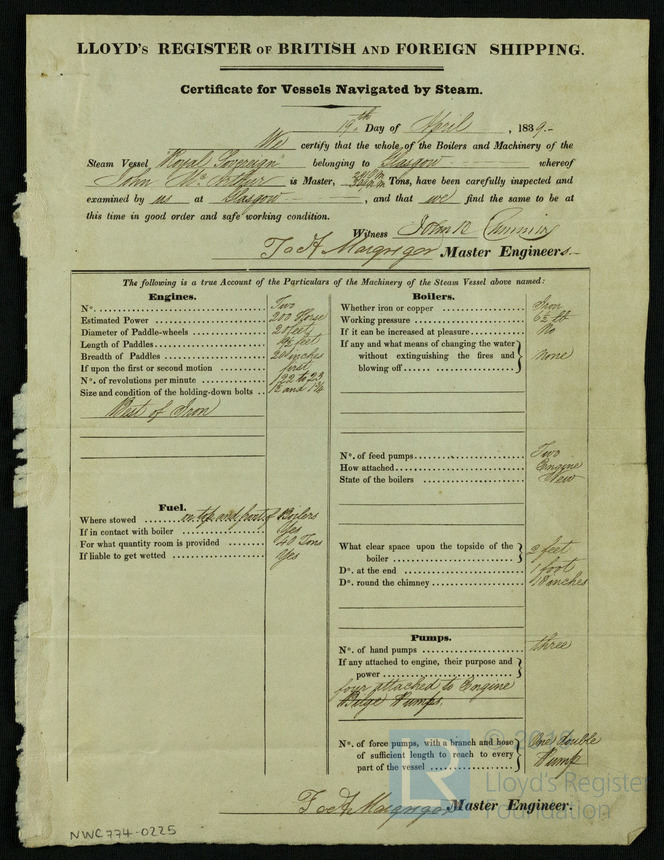 LLOYD'S REGISTER OF BRITISH AND FOREIGN SHIPPING.
Certificate for Vessels Navigated by Steam.
19th Day of April, 1839.
We certify that the whole of the Boilers and Machinery of the
Steam Vessel "Royal Sovereign" belonging to Glasgow whereof
John McArthur is Master, Tons, have been carefully inspected and
examined by us at Glasgow, and that we find the same to be at
this time in good order and safe working condition.
Witness John R
T & A Macgregor Master Engineers.
The following is a true Account of the Particulars of the Machinery of the Steam Vessel above named:
Engines.
No. Two
Estimated Power 200 Horse
Diameter of Paddle-wheels 20 feet
Length of Paddles feet
Breadth of Paddles 20 inches
If upon the first or second motion first
No. of revolutions per minute 22 to 23
Size and condition of the holding-down bolts
Best of Iron
Fuel.
Where stowed on top and part of Boilers
If in contact with boiler Yes
For what quantity room is provided 40 Tons
If liable to get wetted Yes
Boilers.
Whether iron or copper Iron
Working pressure lb
If it can be increased at pleasure No
If any and what means of changing the water
without extinguishing the fires and
blowing off none
No. of feed pumps Two
How attached Engine
State of the boilers New
What clear space upon the topside of the
boiler 2 feet
Do. at the end 1 foot
Do. round the chimney inches
Pumps.
No. of hand pumps three
If any attached to engine, their purpose and
power
four attached to Engine
Bilge Pumps.
No. of force pumps, with a branch and hose
of sufficient length to reach to every
part of the vessel One double
Pump
T & A Macgregor Master Engineer.
NWC774-0225
LR
Lloyd's Register
Foundation